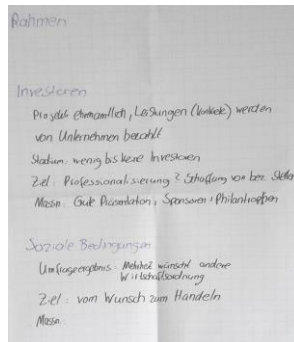 Rahmen
Investoren
Projekt: ehrenamtlich, Leistungen (Vorträge) werden
von Unternehmen bezahlt
Stadium: wenig bis keine Investoren
Ziel: Professionalisierung? Schaffung von bez. Stellen
Massn.: Gute Präsentation, Sponsoren + Philantrophen
Soziale Bedingungen
Umfrageergebnis: Mehrheit wünscht andere
Wirtschaftsordnung
Ziel: vom Wunsch zum Handeln
Massn.: